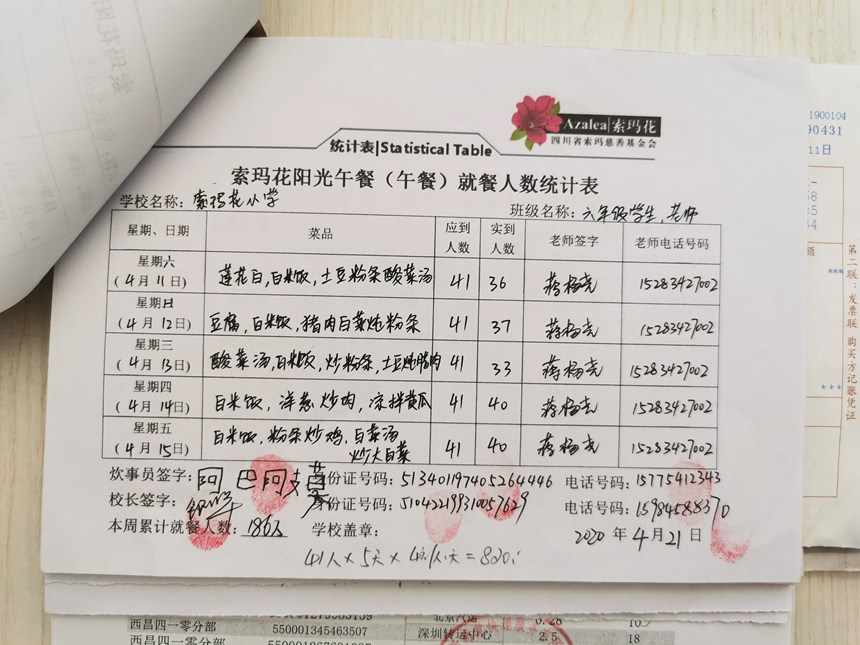 Azalea|索玛花
四川省索玛慈善基金会
统计表|Statistical Table
索玛花阳光午餐（午餐）就餐人数统计表
学校名称：索玛花小学 班级名称：六年级学生、老师
星期、日期 菜品 应到人数 实到人数 老师签字 老师电话号码
星期六
（4月11日） 莲花白，白米饭，土豆粉条酸菜汤 41 36 蒋杨尧 15283427002
星期日
（4月12日） 豆腐，白米饭，猪肉白菜炖粉条 41 37 蒋杨尧 15283427002
星期三
（4月13日） 酸菜汤，白米饭，炒粉条，土豆炖腊肉 41 33 蒋杨尧 15283427002
星期四
（4月14日） 白米饭，洋葱炒肉，凉拌黄瓜 41 40 蒋杨尧 15283427002
星期五
（4月15日） 白米饭，粉条炒鸡，白菜汤 炒大白菜 41 40 蒋杨尧 15283427002
炊事员签字：阿巴阿支莫 身份证号码：513401197405264446 电话号码：15775412343
校长签字： 身份证号码：510422199310057629 电话号码：15984588370
本周累计就餐人数：186人 学校盖章： 2020年4月21日
41人×5天×4元/人/天=820
1900104
90431
11日
第二联：发票联 购买方记账凭证
西昌四一零分部 0.28
西昌四一零分部 550001345463507 深圳转运中心 2.5 18